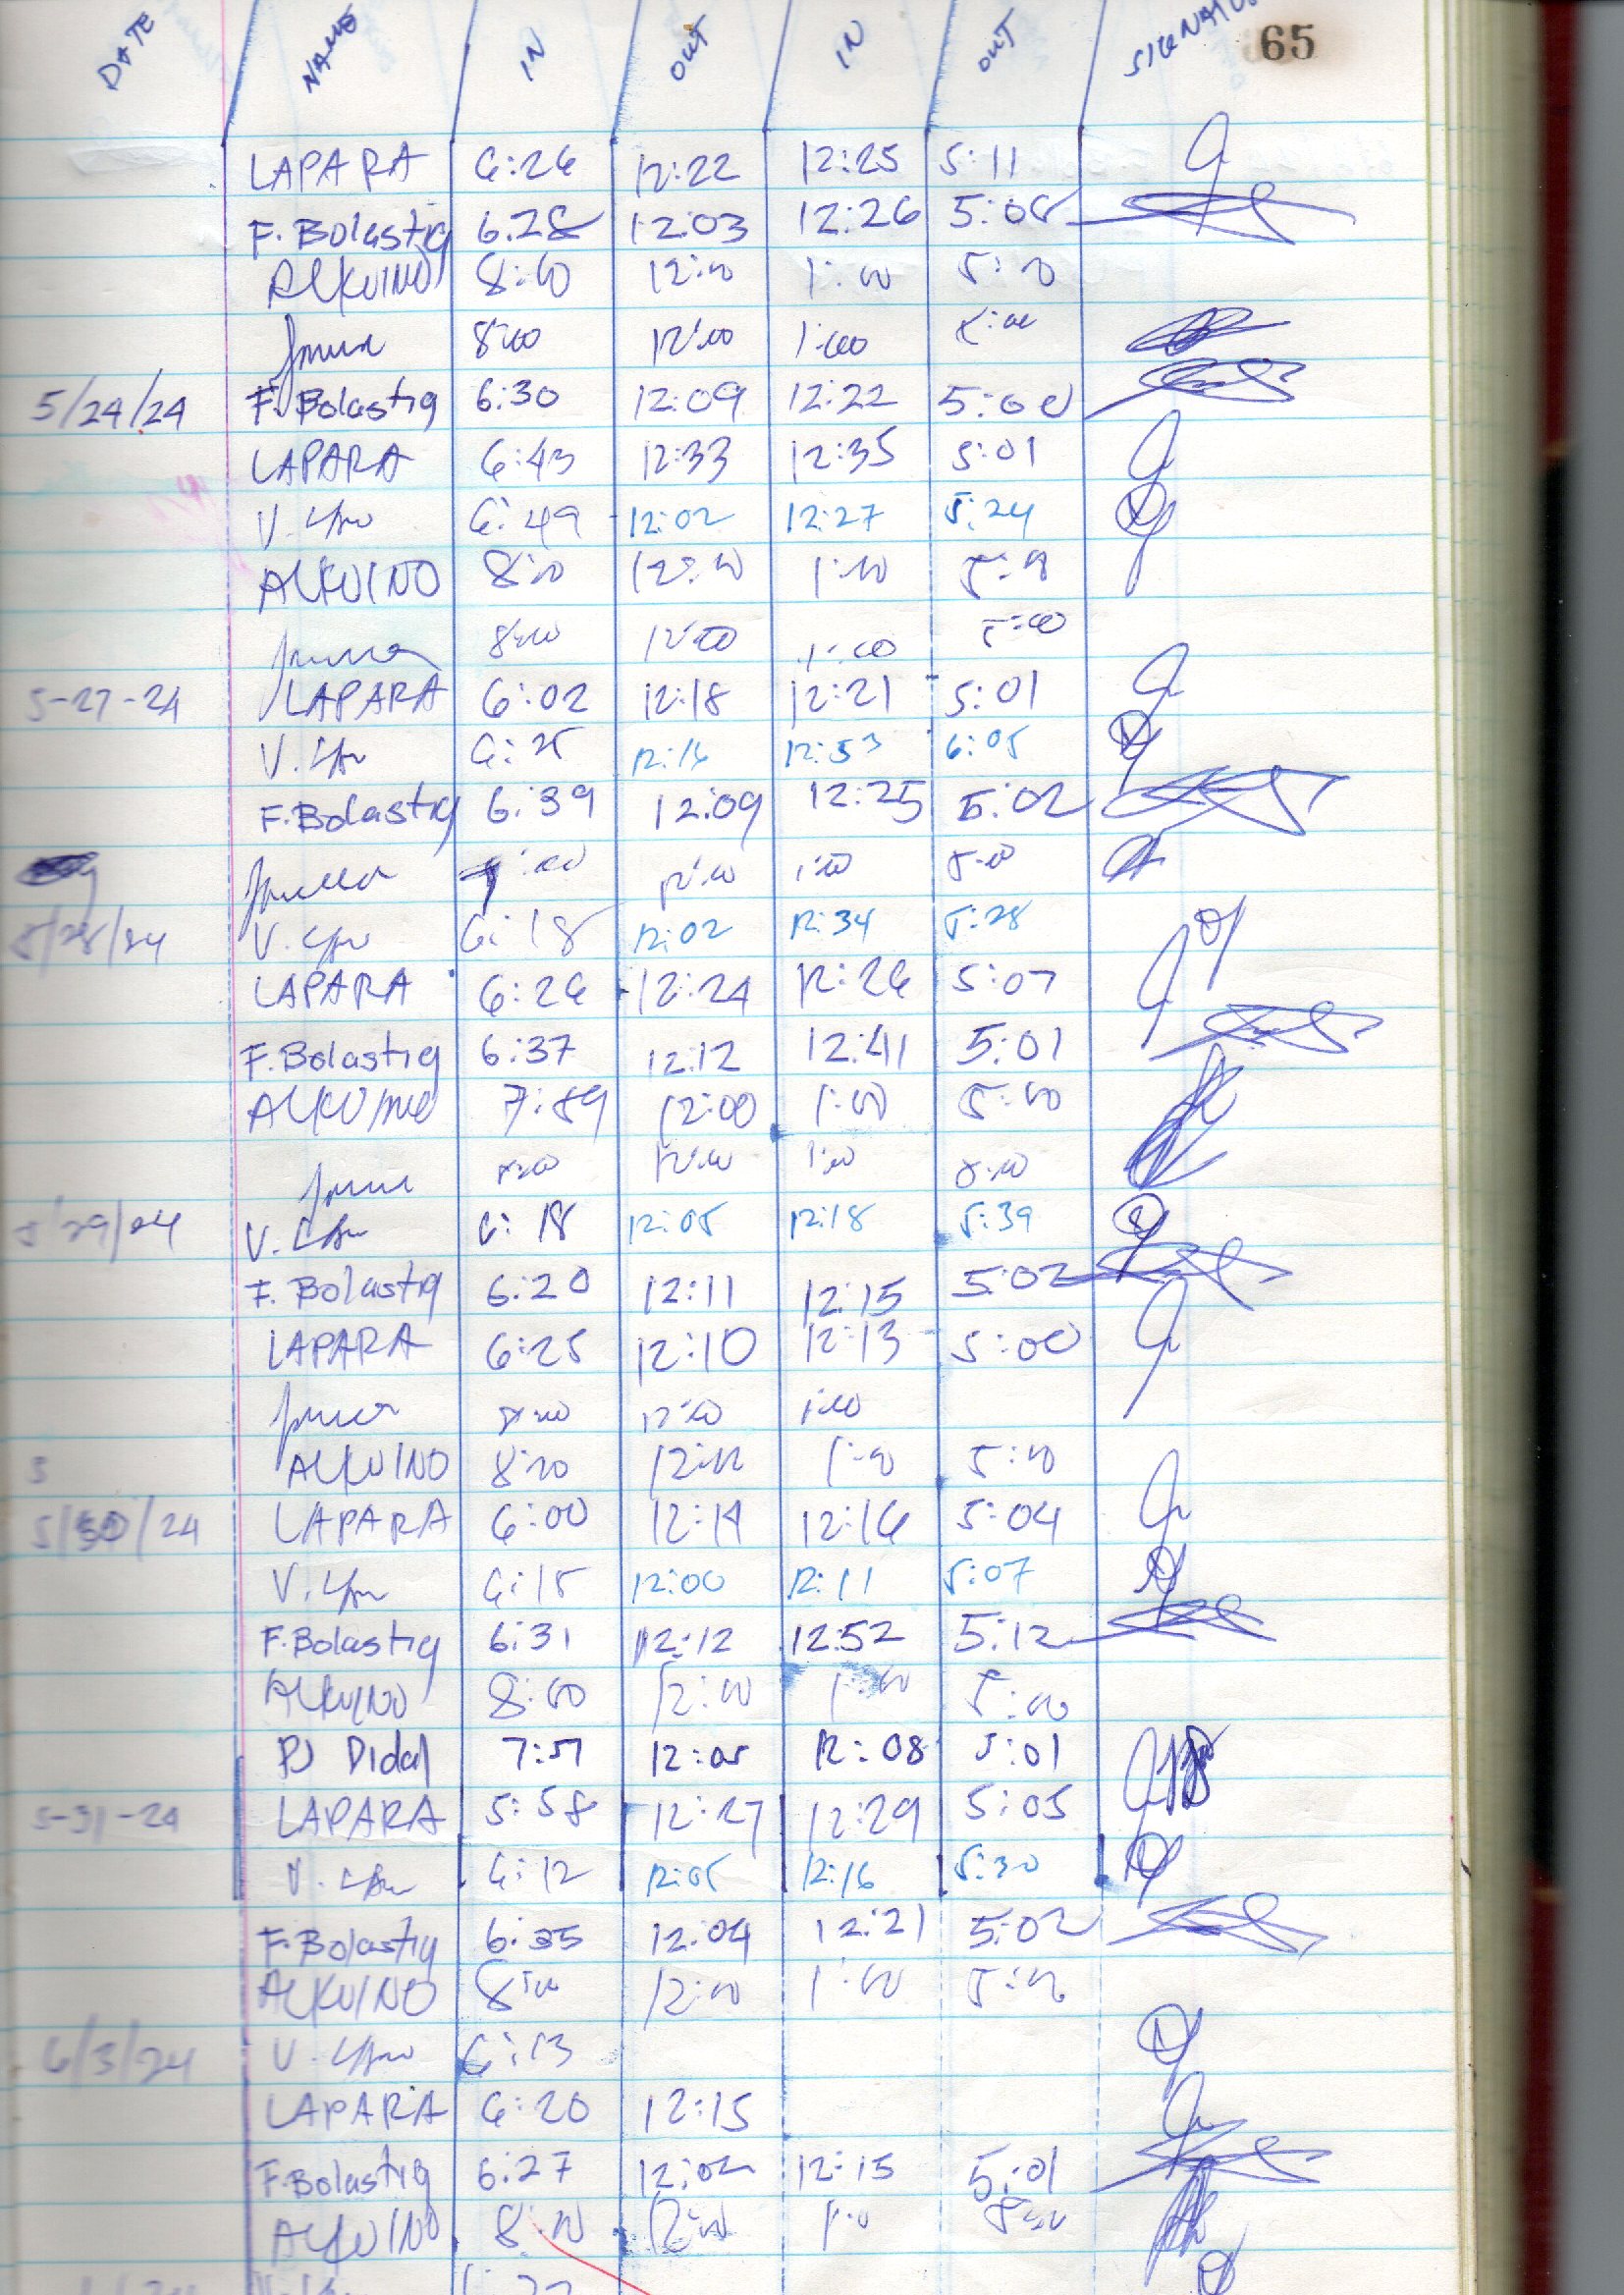 DATE NAME IN OUT IN OUT 65
LAPARA 6:26 12:22 12:25 5:11
F. Bolastig 6:28 12:03 12:26 5:08
ALKUINO 8:00 12:00 1:00 5:00
8:00 12:00 1:00 5:00
5/24/24 F. Bolastig 6:30 12:09 12:22 5:00
LAPARA 6:43 12:33 12:35 5:01
V. 6:49 12:02 12:27 5:24
ALKUINO 8:00 12:00 1:00
8:00 12:00 1:00 5:00
5-27-24 LAPARA 6:02 12:18 12:21 5:01
V. 6:25 12:16 12:53 6:05
F. Bolastig 6:39 12:09 12:25 5:02
:00 12:00 1:00 5:00
5/28/24 V. 6:18 12:02 12:34 5:28
LAPARA 6:26 12:24 12:26 5:07
F. Bolastig 6:37 12:12 12:41 5:01
ALKUINO 7:59 12:00 1:00 5:00
8:00 12:00 1:00 5:00
5/29/24 V. 6:18 12:05 12:18 5:39
F. Bolastig 6:20 12:11 12:15 5:02
LAPARA 6:25 12:10 12:13 5:00
8:00 12:00 1:00
ALKUINO 8:00 12:00 1:00 5:00
5/30/24 LAPARA 6:00 12:14 12:16 5:04
V. 6:15 12:00 12:11 5:07
F. Bolastig 6:31 12:12 12:52 5:12
ALKUINO 8:00 12:00 1:00 5:00
PJ Didal 7:57 12:05 12:08 5:01
5-31-24 LAPARA 5:58 12:27 12:29 5:05
V. 6:12 12:05 12:16 5:30
F. Bolastig 6:35 12:04 12:21 5:02
ALKUINO 8:00 12:00 1:00 5:00
6/3/24 V. 6:13
LAPARA 6:20 12:15
F. Bolastig 6:27 12:02 12:15 5:01
ALKUINO 8:00 12:00 1:00 5:00